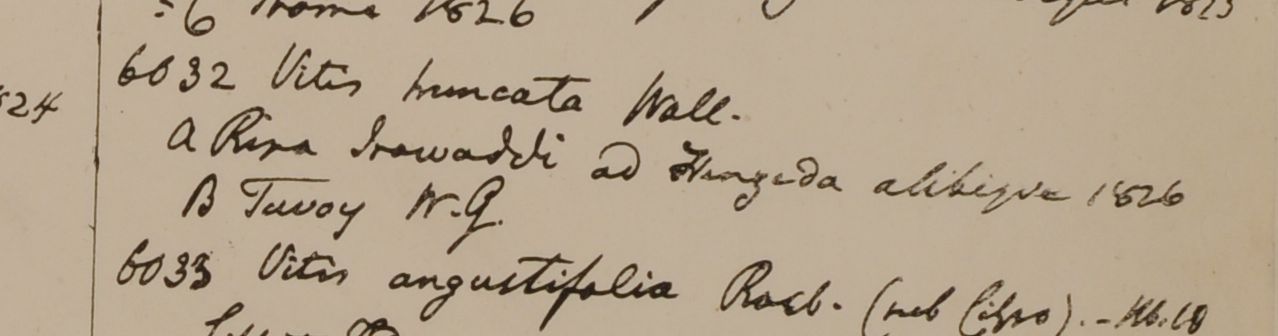 6 Prome 1826
1824
6032 Vitis truncata Wall.
A Ripa Irawaddi ad Hengeda alibique 1826
B Tavoy W.G.
6033 Vitis angustifolia Roxb. (sub Cisso). - Hb.